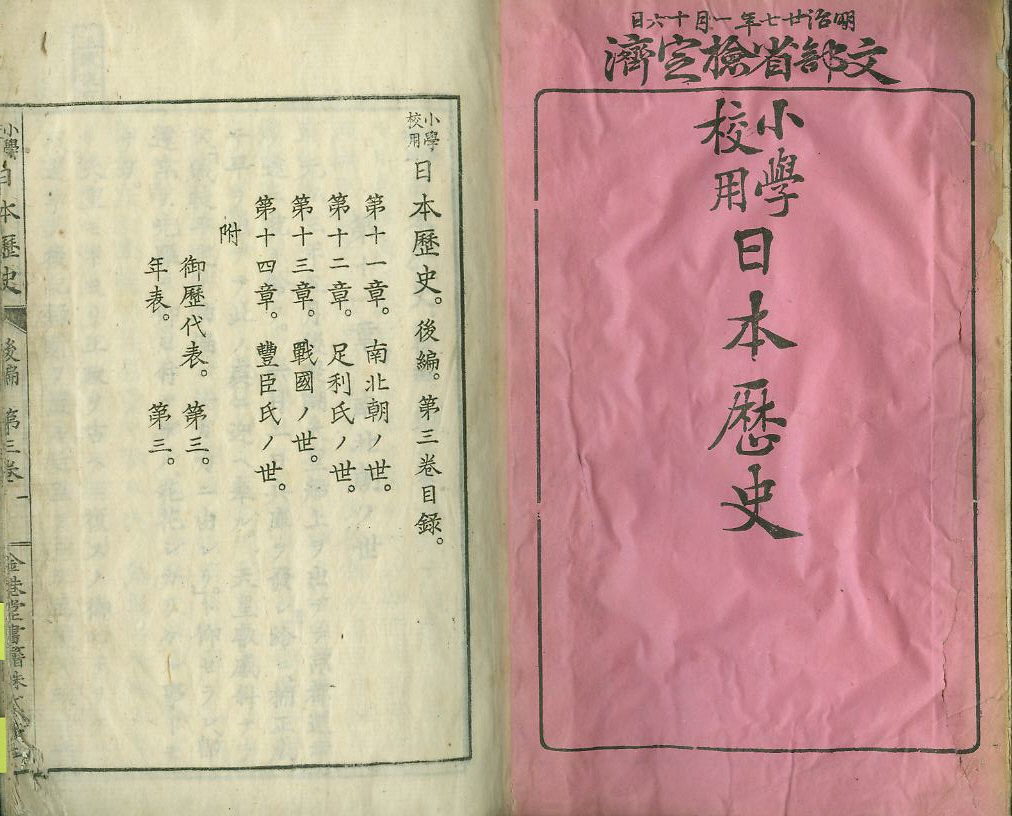 明治廿七年一月十六日
文部省檢定濟
小學校用
日本歷史
小學校用 日本歷史。後編。第三卷目録。
第十一章。南北朝ノ世。
第十二章。足利氏ノ世。
第十三章。戰國ノ世。
第十四章。豐臣氏ノ世。
附
御歷代表。第三。
年表。第三。
小學 日本歷史 後編 第三卷 一 金港堂書籍株